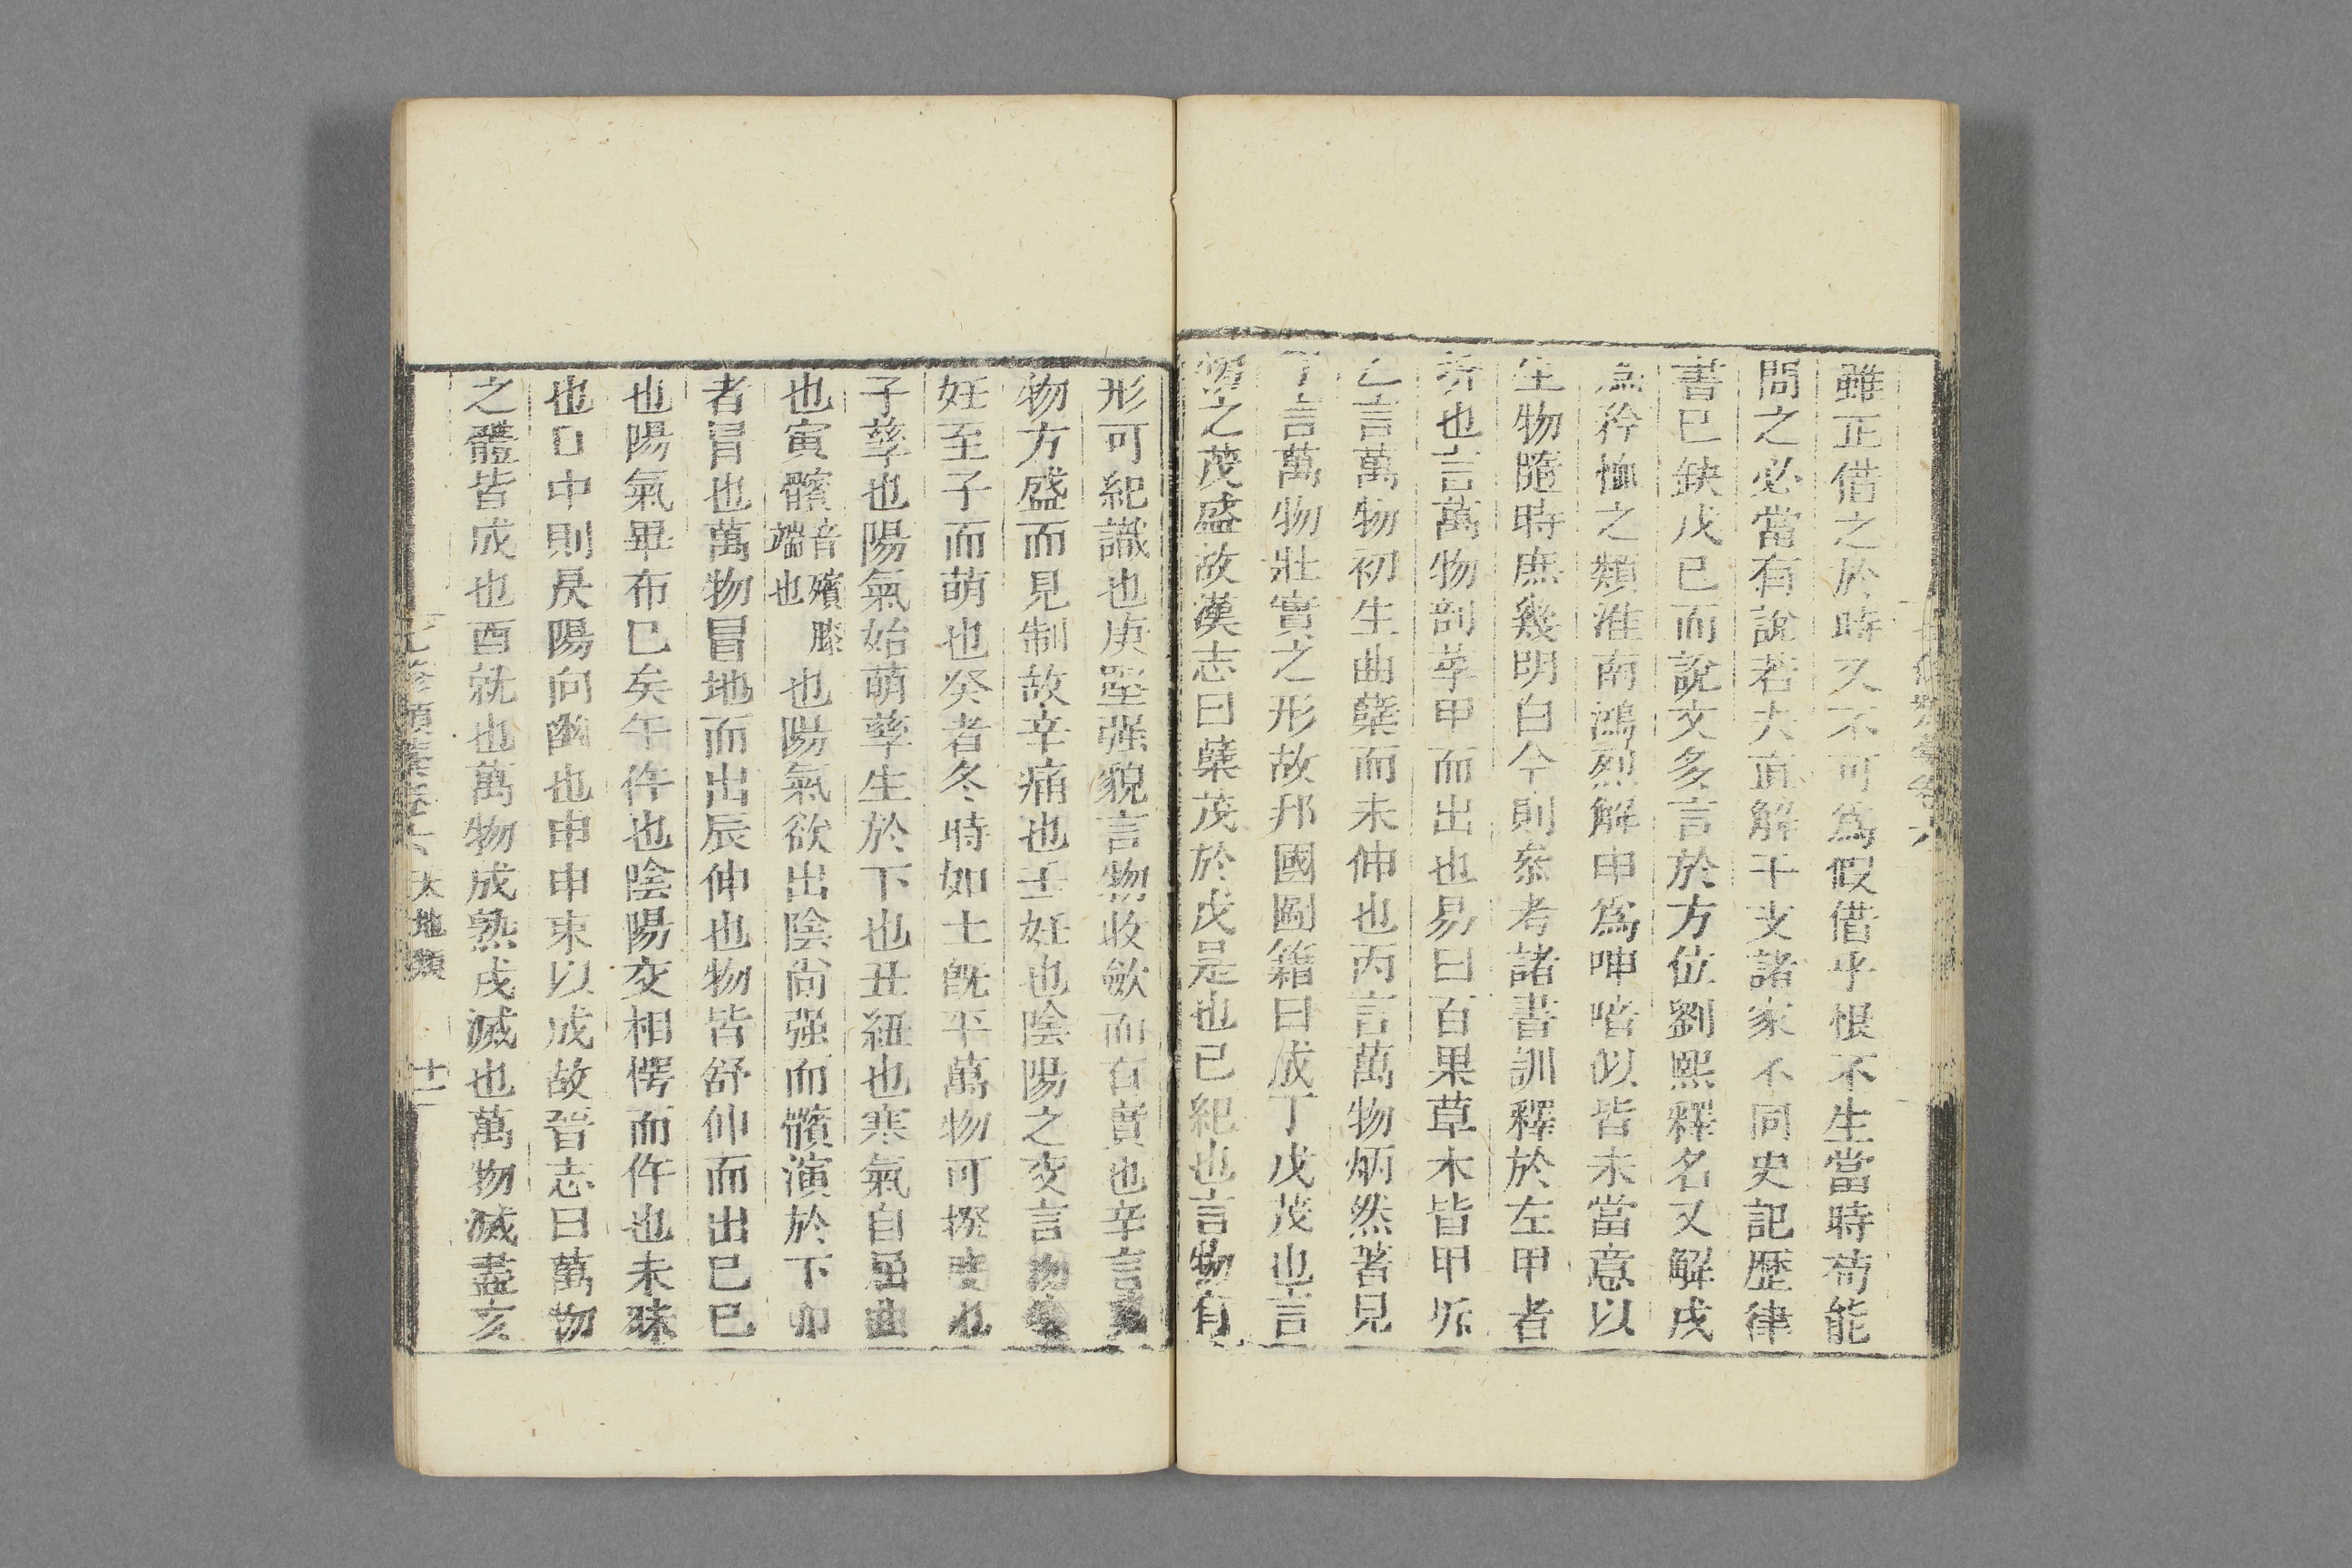 雖正借之於時久不可爲假借乎恨不生當時苟能
問之必當有說若夫直解干支諸家不同史記歷律
書已缺戊己而說文多言於方位劉熙釋名又解戌
爲矜恤之類淮南鴻烈解申爲呻啽似皆未當意以
生物隨時庶幾明白今則叅考諸書訓釋於左甲者
拆也言萬物剖莩甲而出也易曰百果草木皆甲坼
乙言萬物初生曲蘖而未伸也丙言萬物炳然著見
丁言萬物壯實之形故邦國圖籍曰成丁戊茂也言
物之茂盛故漢志曰蘖茂於戊是也己紀也言物有
形可紀識也庚堅强貌言物收斂而有實也辛言
物方盛而見制故辛痛也壬妊也陰陽之交言物
妊至子而萌也癸者冬時如土既平萬物可揆度也
子孳也陽氣始萌孳生於下也丑紐也寒氣自屈曲
也寅髕音殯膝端也也陽氣欲出陰尚强而髕演於下卯
者冒也萬物冒地而出辰伸也物皆舒伸而出巳巳
也陽氣畢布巳矣午仵也陰陽交相愕而仵也未昧
也日中則昃陽向幽也申申束以成故晉志曰萬物
之體皆成也酉就也萬物成熟戌滅也萬物滅盡亥
七修類稾卷六 天地類 十一